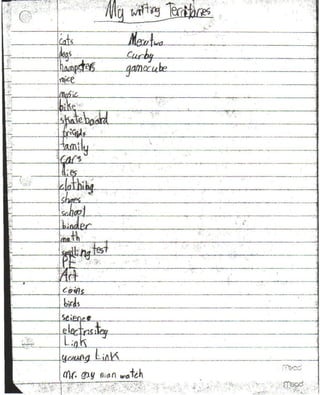 My writing Territories
cats Meowtwo
dogs curby
hampsters gamecube
mice
music
bike
skateboard
friends
family
cars
lies
clothing
shoes
school
binder
math
spelling test
PE
Art
coins
birds
science
electrisitey
Link
young Link
mr. gay man watch
mead
mead